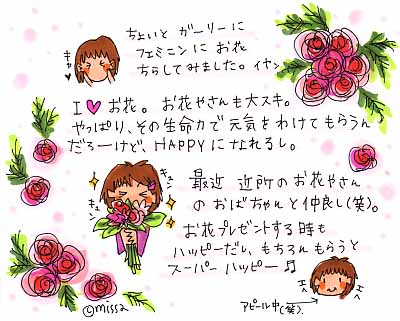 ちょいと ガーリーに
フェミニンに お花
ちらしてみました。イヤン
キャ
I♥お花。 お花やさんも大スキ。
やっぱり、その生命力で元気をわけてもらうん
だろーけど、HAPPYになれるし。
キュン
キュン
最近 近所のお花やさん
のおばちゃんと仲良し(笑)。
お花プレゼントする時も
ハッピーだし、もちろんもらうと
スーパーハッピー♫
アピール中(笑).
©missa